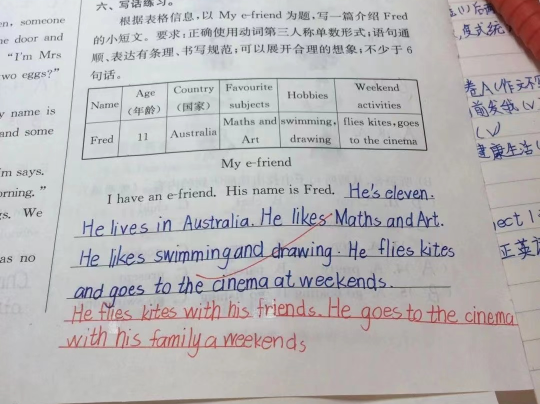 en, someone
e door and
"I'm Mrs
wo eggs?"
y name is
and some
'm says.
orning."
gs. We
as no
六、写话练习。
根据表格信息,以 My e-friend 为题,写一篇介绍 Fred
的小短文。要求:正确使用动词第三人称单数形式;语句通
顺、表达有条理、书写规范;可以展开合理的想象;不少于 6
句话。
Name Age (年龄) Country (国家) Favourite subjects Hobbies Weekend activities
Fred 11 Australia Maths and Art swimming, drawing flies kites, goes to the cinema
My e-friend
I have an e-friend. His name is Fred. He's eleven.
He lives in Australia. He likes Maths and Art.
He likes swimming and drawing. He flies kites
and goes to the cinema at weekends.
He flies kites with his friends. He goes to the cinema
with his family a weekends
(√)
ect